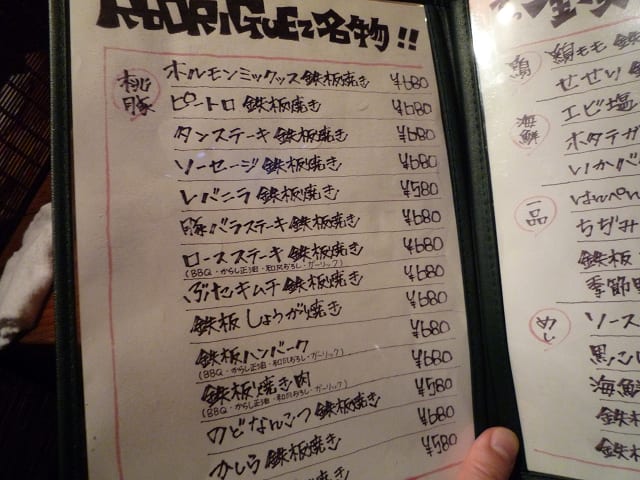 RODRIGUEZ名物!!
桃豚
ホルモンミックッス鉄板焼き ¥680
ピートロ 鉄板焼き ¥680
タンステーキ 鉄板焼き ¥680
ソーセージ 鉄板焼き ¥680
レバニラ 鉄板焼き ¥580
豚バラステーキ鉄板焼き ¥680
ロースステーキ 鉄板焼き ¥680
(BBQ・からし正油・和風おろし・ガーリック)
ぶたキムチ 鉄板焼き ¥680
鉄板 しょうが焼き ¥680
鉄板ハンバーク ¥680
(BBQ・からし正油・和風おろし・ガーリック)
鉄板焼き肉 ¥580
(BBQ・からし正油・和風おろし・ガーリック)
のどなんこつ 鉄板焼き ¥680
かしら 鉄板焼き ¥580
鶏
鶏モモ 鉄
せせり 鉄
海鮮
エビ塩
ホタテガ
いかバ
一品
はんぺん
ちぢみ
鉄板
季節野
めし
ソース
黒こし
海鮮
鉄
鉄